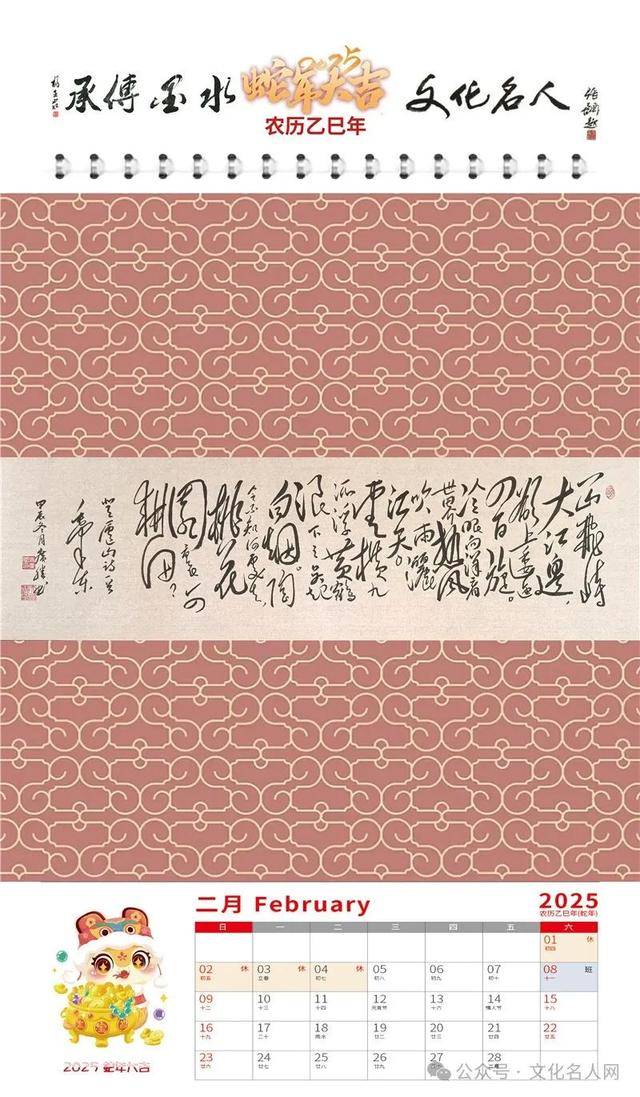 承傳墨水
2025
蛇年大吉
文化名人
农历乙巳年
山飛峙
大江邊,
躍上葱蘢
四百旋。
冷眼向洋看
世界,热風
吹雨灑
江天。
雲横九
派浮黄鶴
浪下三吴起
白烟。陶
令不知何處去
桃花
園里可
耕田？
登廬山诗一首
毛泽东
甲辰冬月
二月 February
2025
农历乙巳年(蛇年)
日 一 二 三 四 五 六
01 休
初四
02 休 03 休 04 休 05 06 07 08 班
初五 立春 初七 初八 初九 初十 十一
09 10 11 12 13 14 15
十二 十三 十四 元宵节 十六 情人节 十八
16 17 18 19 20 21 22
十九 二十 雨水 廿二 廿三 廿四 廿五
23 24 25 26 27 28
廿六 廿七 廿八 廿九 三十 二月
2025 蛇年大吉
公众号 · 文化名人网